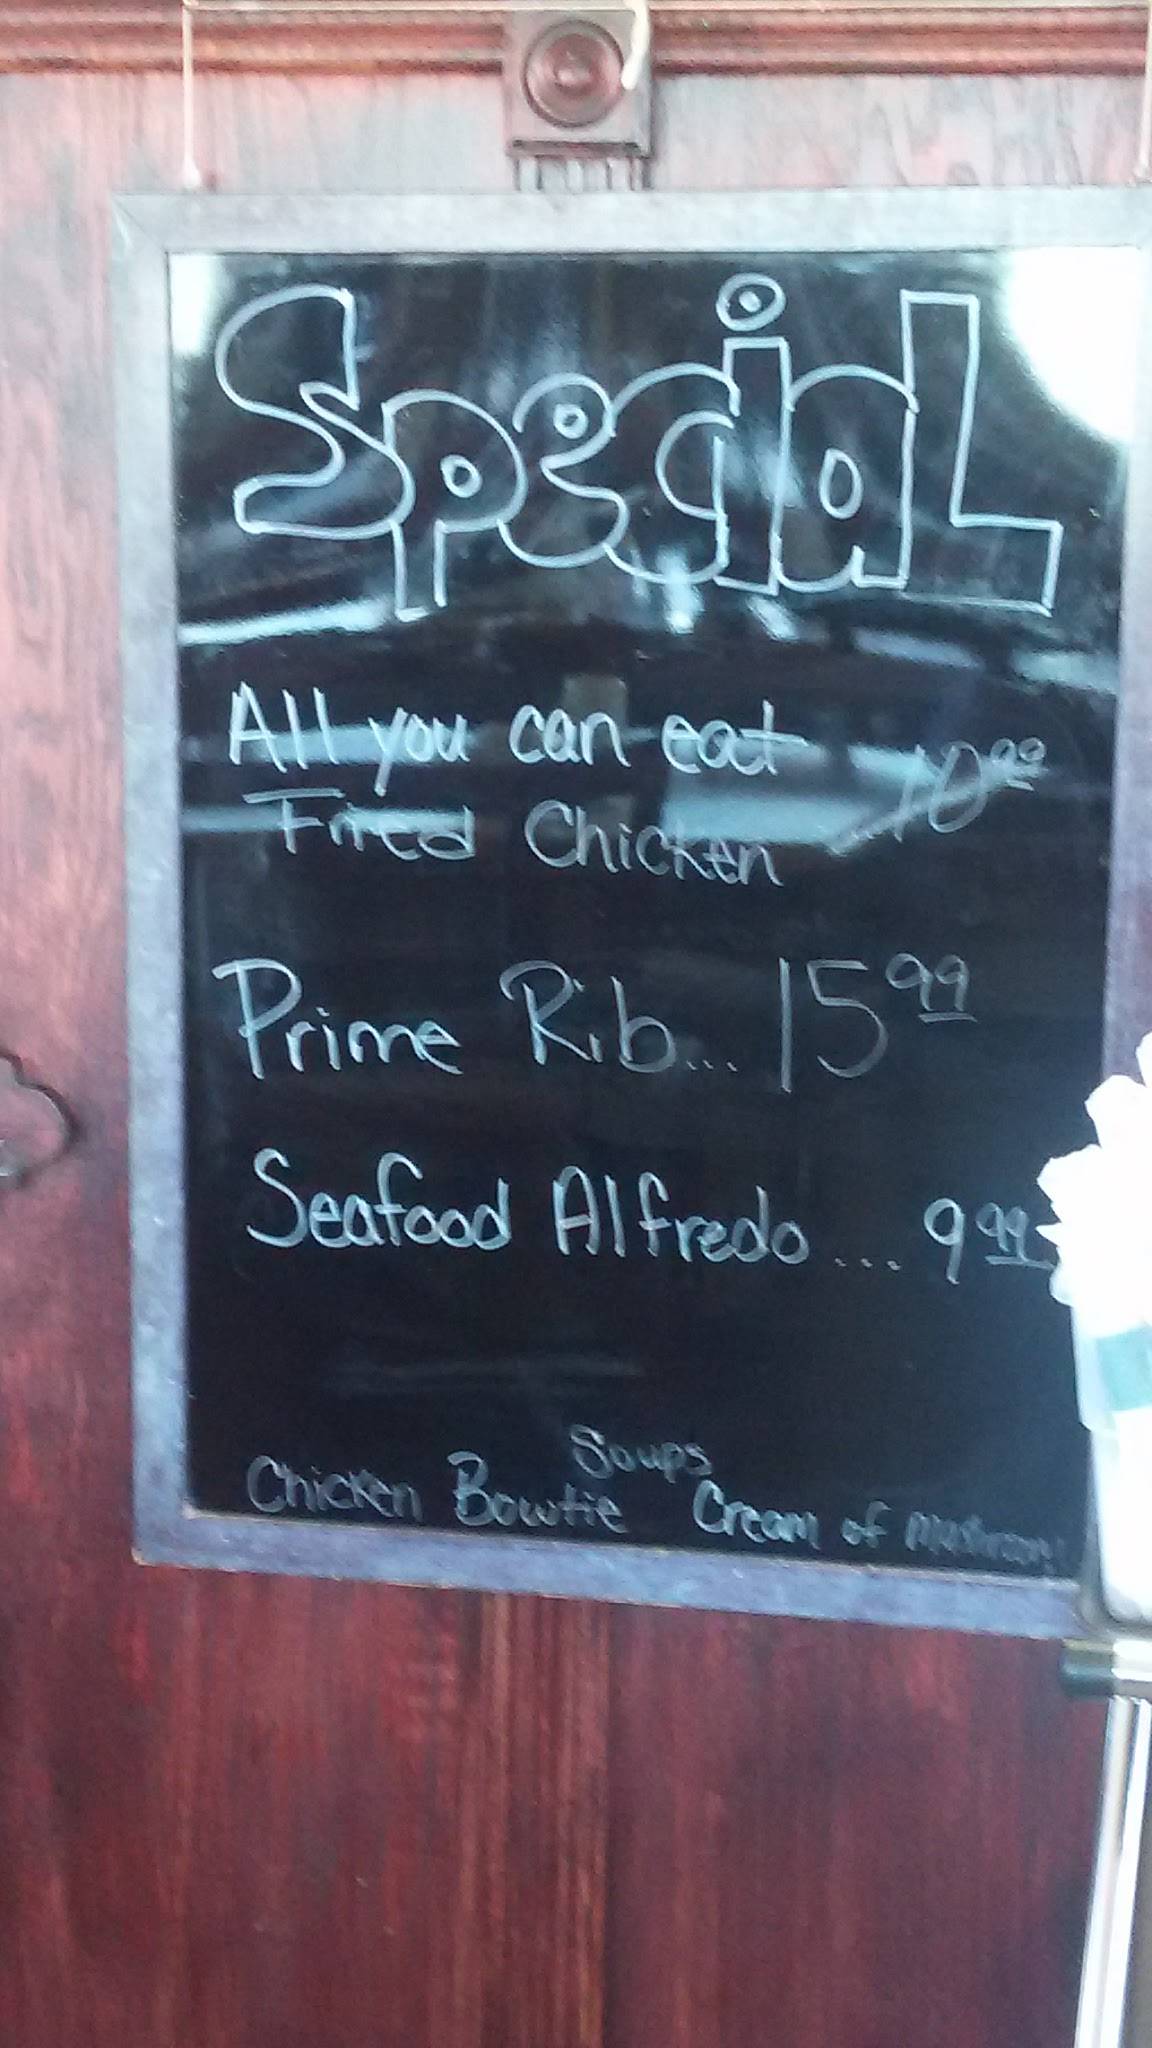 Special
All you can eat
Fried Chicken ... 10.99
Prime Rib... 15 99
Seafood Alfredo .... 9 99
Soups
Chicken Bowtie Cream of Mushroom